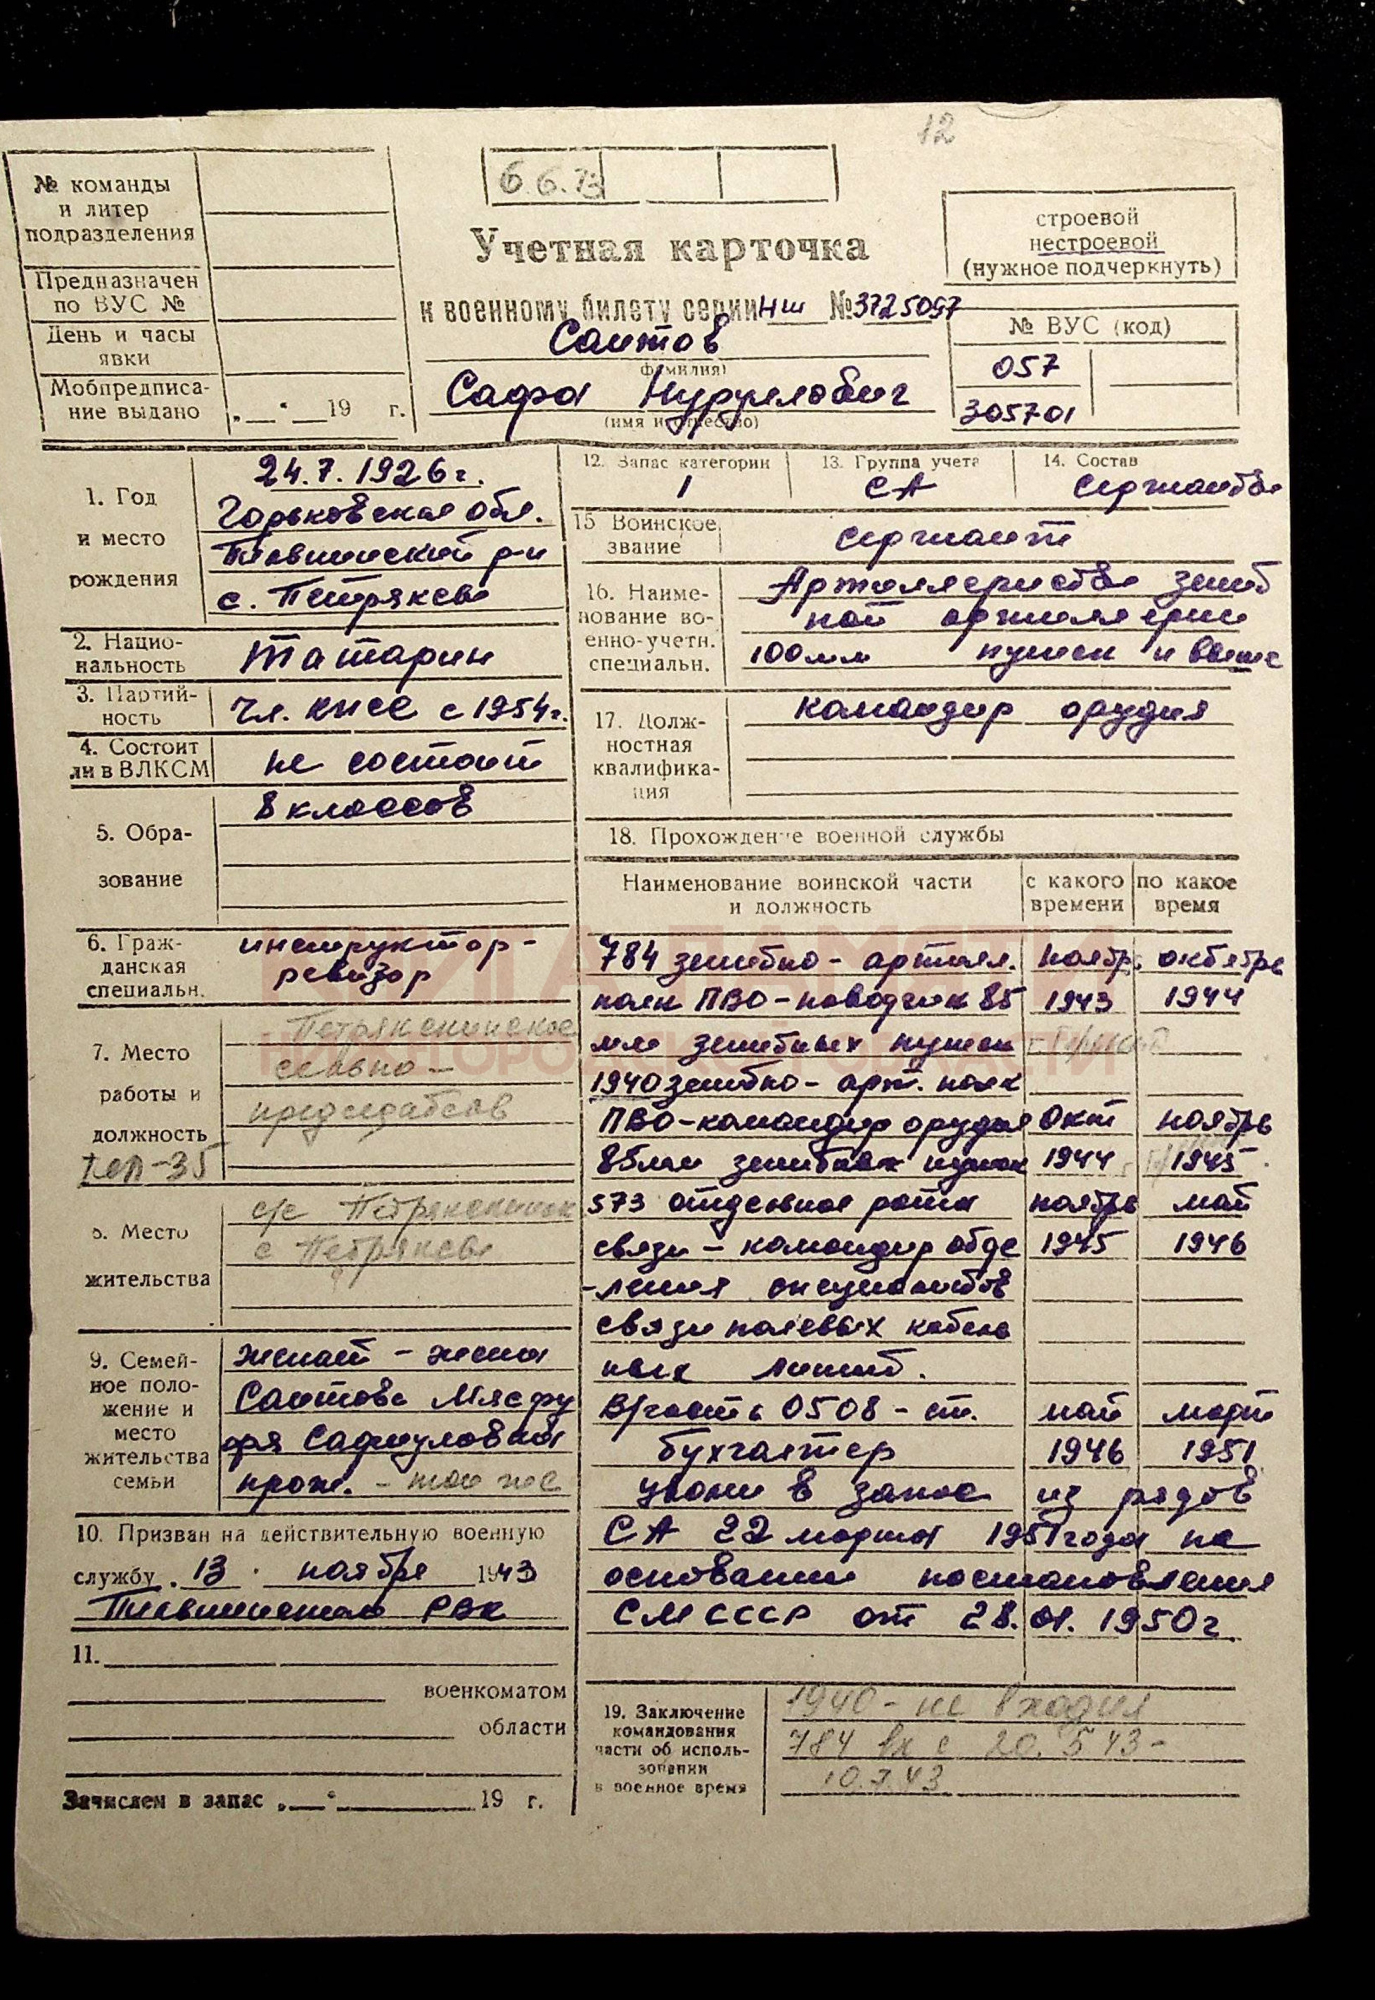 12
№ команды
и литер
подразделения
Предназначен
по ВУС №
День и часы
явки
Мобпредписа-
ние выдано
19 г.
6.6.73
Учетная карточка
к военному билету серии НШ № 3725097
Саитов
(фамилия)
Сафа Нуруллович
(имя и отчество)
строевой
нестроевой
(нужное подчеркнуть)
№ ВУС (код)
057
305701
1. Год
и место
рождения
24.7.1926г.
Горьковская обл.
Пильнинский р-н
с. Петряксы
2. Нацио-
нальность
Татарин
3. Партий-
ность
Чл. КПСС с 1954г.
4. Состоит
ли в ВЛКСМ
не состоит
5. Обра-
зование
8 классов
6. Граж-
данская
специальн.
инструктор-
ревизор
7. Место
работы и
должность
Петряксинское
сельпо-
тел-35
8. Место
жительства
с/с Петряксинск
с Петряксы
9. Семей-
ное поло-
жение и
место
жительства
семьи
женат - жена
Саитова
прож. - там же
10. Призван на действительную военную
службу 13 ноября 1943
Пильнинским РВК
11.
военкоматом
области
Зачислен в запас 19 г.
12. Запас категории
1
13. Группа учета
СА
14. Состав
сержантов
15 Воинское
звание
сержант
16. Наиме-
нование во-
енно-учетн.
специальн.
Артиллерийская зенит
ной артиллерии
100мм пушек и выше
17. Долж-
ностная
квалифика-
ция
командир орудия
18. Прохождение военной службы
Наименование воинской части
и должность
с какого
времени
по какое
время
784 зенитно-артилл. ноябрь октябрь
полк ПВО-наводчик 85 1943 1944
мм зенитных пушек
1940 зенитно-арт. полк
ПВО-командир орудия окт ноябрь
85мм зенитных пушек 1944 1945
573 отдельная рота ноябрь май
связи - командир отде 1945 1946
-ления специалистов
связи полевых кабель
ных линий.
В/часть 0508 - ст. май март
бухгалтер 1946 1951
уволен в запас из рядов
СА 22 марта 1951года на
основании постановления
СМ СССР от 28.01.1950г.
19. Заключение
командования
части об исполь-
зовании
в военное время
1940 - не входил
784 вх с 20.5 43-
10.7.43
КНИГА ПАМЯТИ
НИЖЕГОРОДСКОЙ ОБЛАСТИ